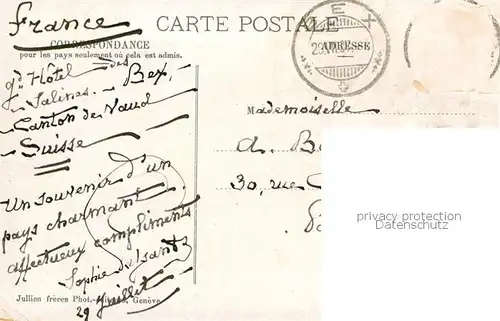 France
CARTE POSTALE
CORRESPONDANCE
pour les pays seulement où cela est admis.
ADRESSE
EX
29.VII.07
gd Hôtel des
Salines. - Bex,
Canton de Vaud
Suisse
Mademoiselle
A. B
30, rue C
privacy protection
Datenschutz
Un souvenir d'un
pays charmant
affectueux compliments
Sophie
29 Juillet
Jullien frères Phot.-Éditeurs, Genève